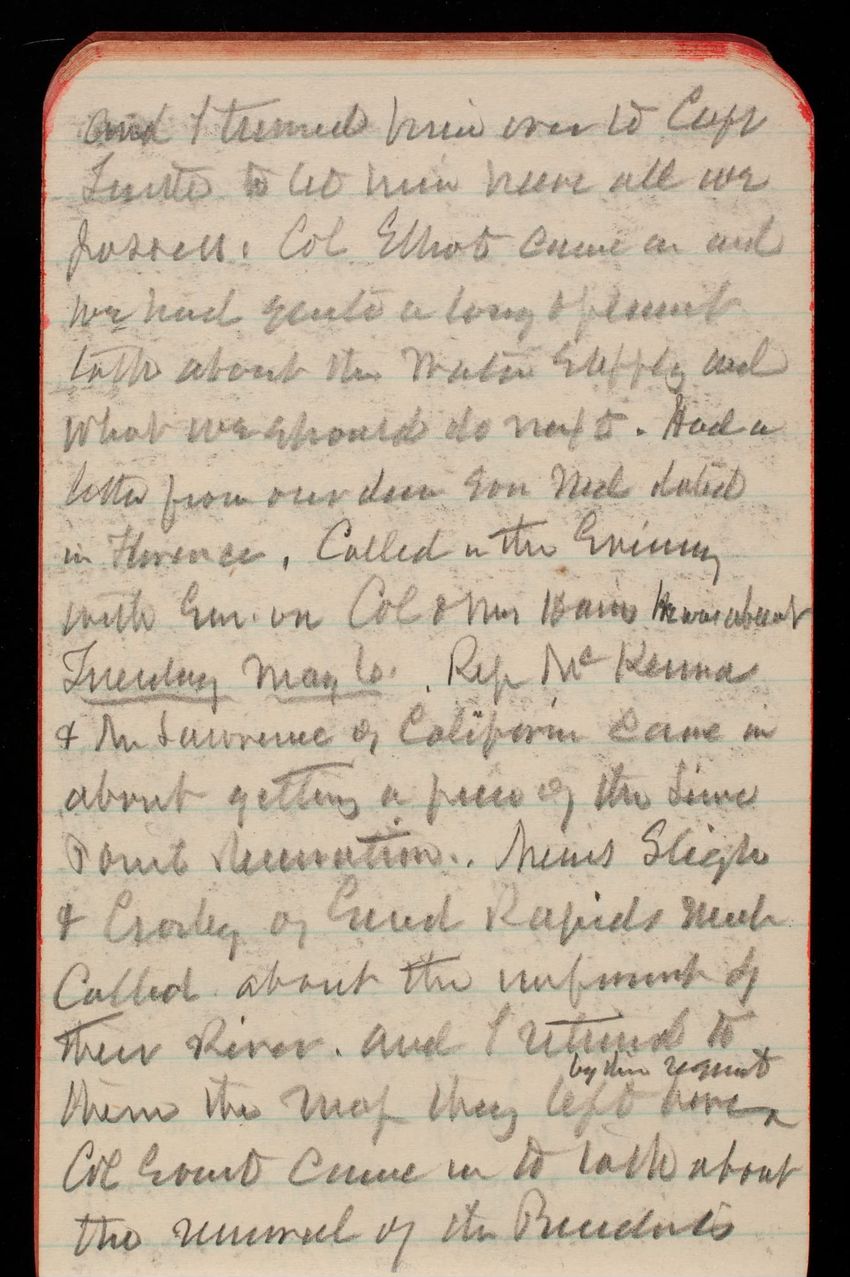 and I turned him over to Capt
to let him have all we
possess. Col Elliot came in and
we had quite a long & pleasant
talk about the Water Supply and
what we should do next. Had a
letter from our dear son Ned dated
in Florence. Called in the Evening
with Gen. on Col & Mrs Bains He was absent
Tuesday May 6. Rep McKenna
& Mr Lawrence of California came in
about getting a piece of the Lime
Point Reservation. Messrs Sligh
& Crosby of Grand Rapids Mich
Called about the improvement of
their River. and I returned to
by their request
them the Map they left here
Col Grant came in to talk about
the removal of the Presidents